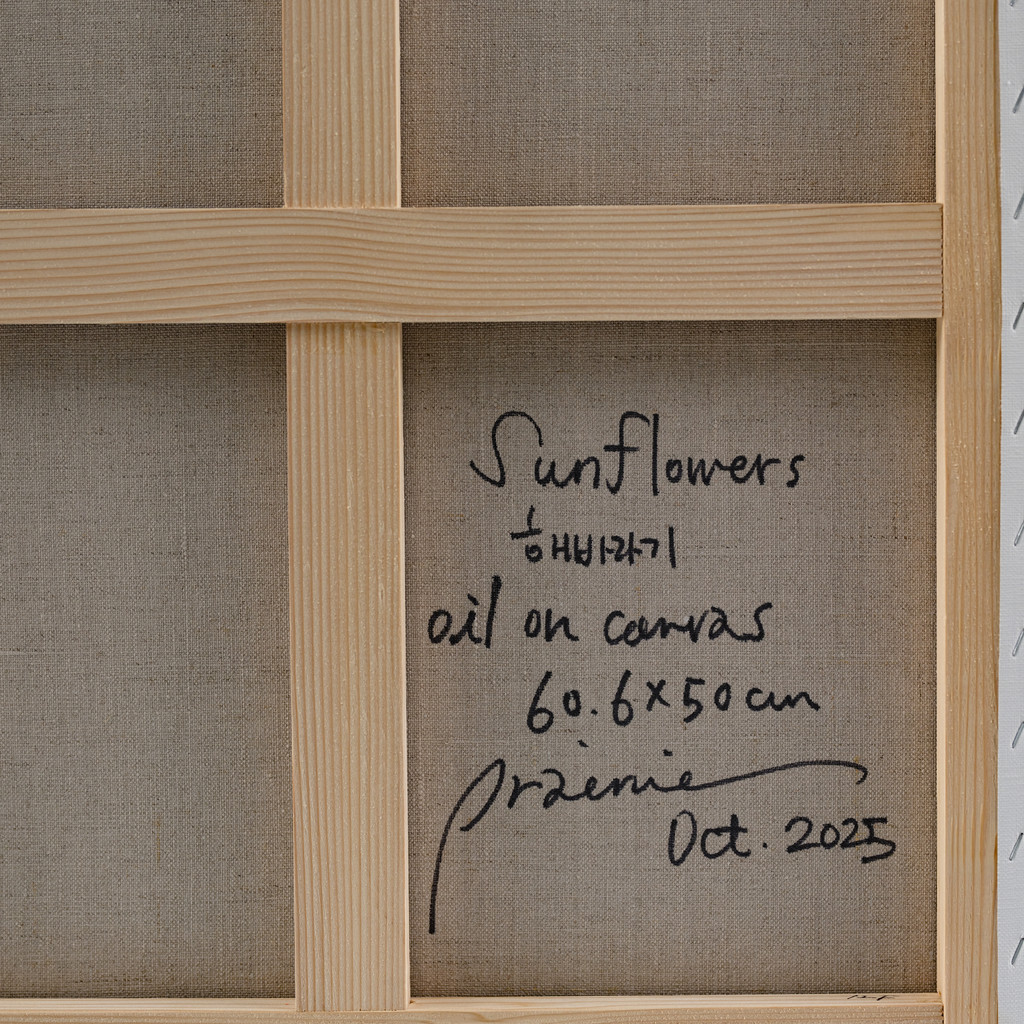 Sunflowers
해바라기
oil on canvas
60.6×50cm
Oct. 2025